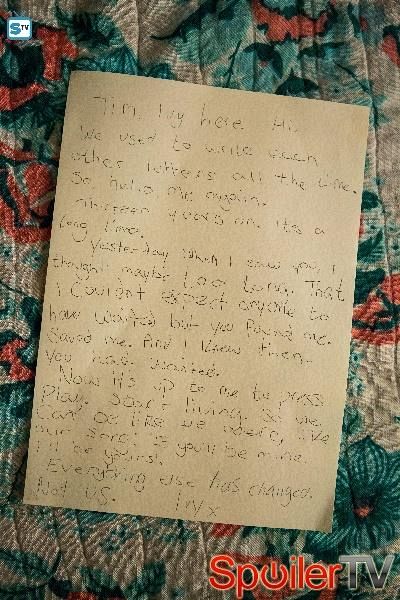 S TV
TIM. Ivy here. Hi.
We used to write each
other letters all the time.
So, hello, me again.
Thirteen years on. Its a
long time.
Yesterday, when I saw you, I
thought maybe too long. That
I couldn't expect anyone to
have waited but you found me.
Saved me. And I knew then-
you had waited.
Now it's up to me to press
Play. Start living. So we
can be like we were, like
our song; if you'll be mine,
I'll be yours.
Everything else has changed.
Not us. Ivy x
SpoilerTV